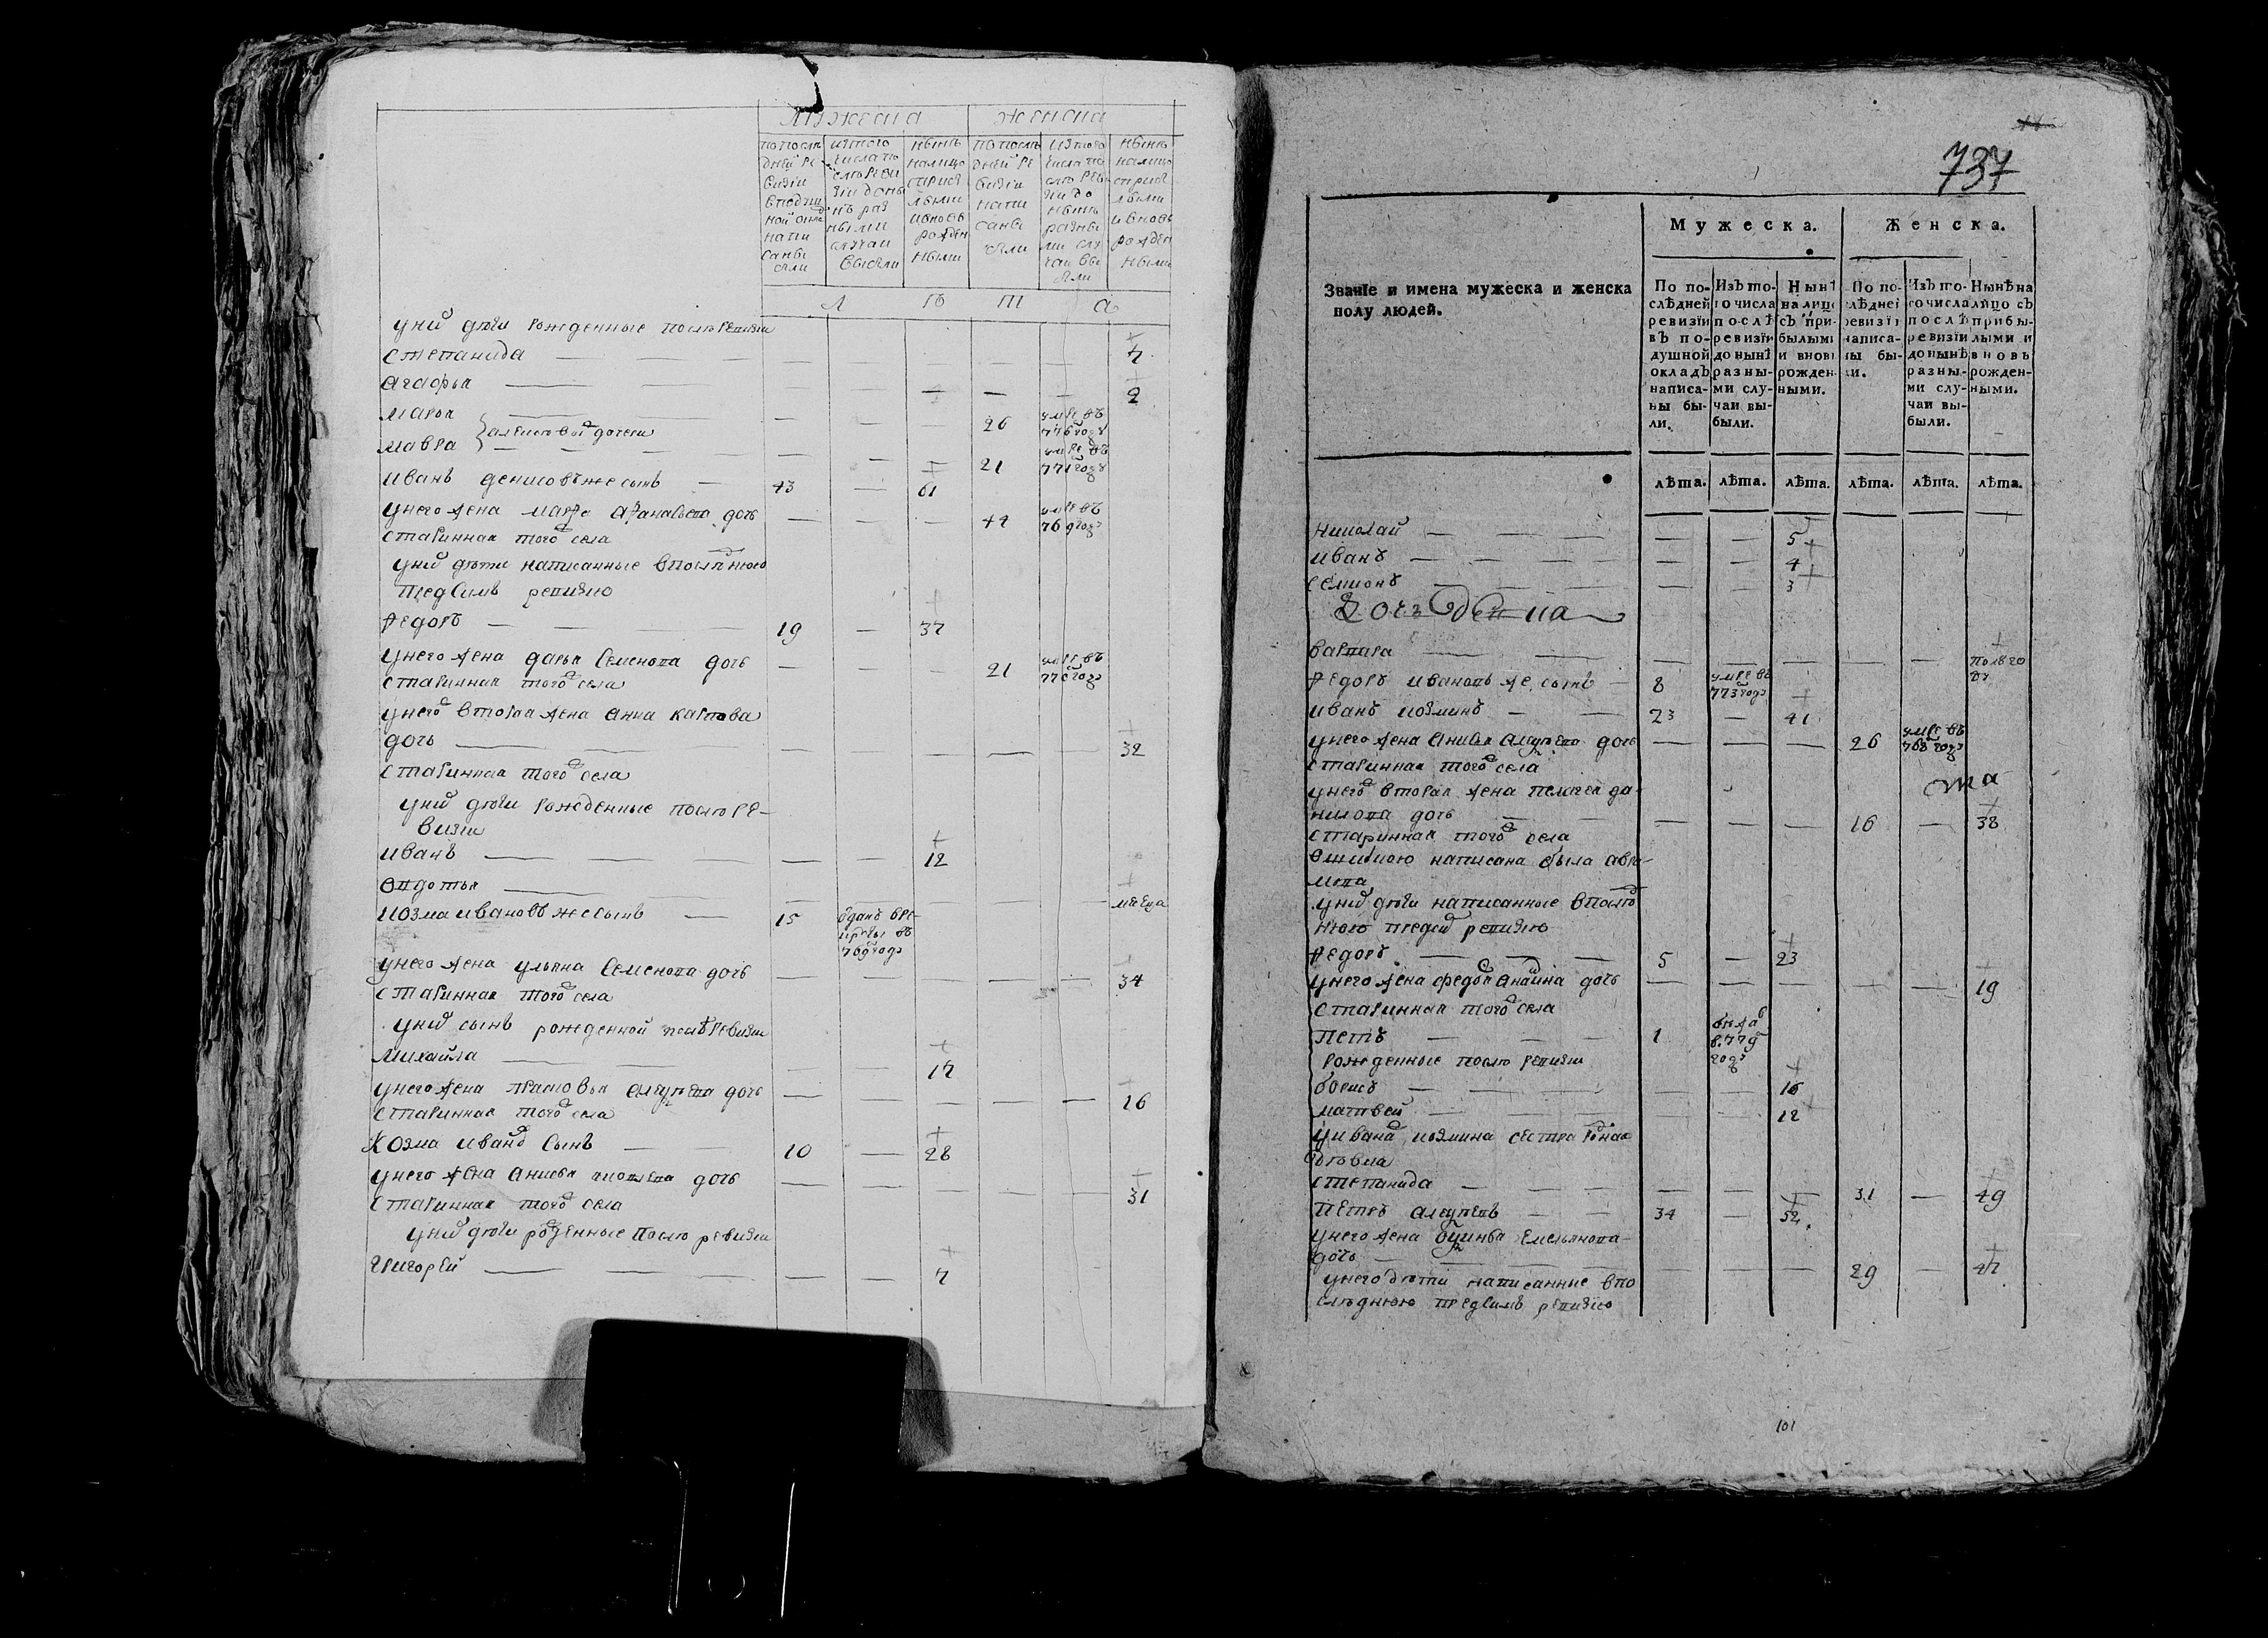 Мужеска Женска
попослѣ дней ре визіи вподуш ной окла напи саны были
изтого числа по слѣ реви зіи доны нѣ раз ными случаи выбыли
нынѣ налицо сприбы лыми ивновь рожден ными
попослѣ дней ре визіи напи саны были
изтого числа по слѣ реви зіи до нынѣ разны ми слу чаи вы были
нынѣ налицо сприбы лыми ивновь рожден ными
Л ѣ т а
уних дѣти рожденные послѣ ревизии
степанида — — — — — — — 7
агафья — — — — — 2
марья — — — 26 умре въ 776 году
алексѣевы дочери
мавра — — — — — — — 21 умре въ 771 году
иванъ денисовъ же сынъ — 43 — 61
унего жена марфа афанасьева дочь — — — 42 умре въ 769 году
старинная того села
уних дѣти написанные впослѣднюю
предсимъ ревизию
федоръ — — — 19 — 37
унего жена дарья семенова дочь — — — 21 умре въ 770 году
старинная того села
унего вторая жена анна карпова
дочь — — — — — — — 32
старинная того села
уних дѣти рожденные послѣ ре-
визии
иванъ — — — — — 12
овдотья — — — — — — месеца
козма ивановъ же сынъ — 15 отданъ вре- круты въ 769 году
унего жена ульяна семенова дочь — — — — — 34
старинная того села
уних сынъ рожденной послѣ ревизии
михайла — — — 17
унего жена прасковья алексѣева дочь — — — — — 16
старинная того села
Козма иванов сынъ — — 10 — 28
унего жена анисья дочь — — — — — 31
старинная того села
уних дѣти рожденные послѣ ревизии
григорей — — — — — 7
737
Мужеска. Женска.
Званіе и имена мужеска и женска полу людей.
По по- слѣдней ревизіи въ по- душной окладъ написа- ны бы- ли.
Изъ то- го числа послѣ ревизіи до нынѣ разны- ми слу- чаи вы- были.
Нынѣ на лицо съ при- былыми и вновь рожден- ными.
По по- слѣдней ревизіи написа- ны бы- ли.
Изъ то- го числа послѣ ревизіи до нынѣ разны- ми слу- чаи вы- были.
Нынѣ на лицо съ прибы- лыми и вновь рожден- ными.
лѣта. лѣта. лѣта. лѣта. лѣта. лѣта.
николай — — — — — 5
иванъ — — — — — — 4
семионъ — — — — — 3
варвара — — — — — — — полго ду
федоръ ивановъ же сынъ — 8 умре въ 773 году
иванъ козминъ — — 23 — 41
унего жена анисья алексѣева дочь — — — 26 умре въ 768 году
старинная того села
унего вторая жена пелагея да-
нилова дочь — — — — — 16 — 38
старинная того села
ошибкою написана была авра-
мова
уних дѣти написанные впослѣд
нюю предсим ревизию
федоръ — — — 5 — 23
унего жена федосья дочь — — — — — 19
старинная того села
петръ — — — 1
рожденные послѣ ревизии
борисъ — — — — — 16
матвей — — — — — 12
уивана козмина сестра родная
девка
степанида — — — — — — 31 — 49
петръ алексѣевъ — — 34 — 52
унего жена емельянова
дочь — — — — — 29 — 47
унего дѣти написанные впо
слѣднюю предсимъ ревизию
101